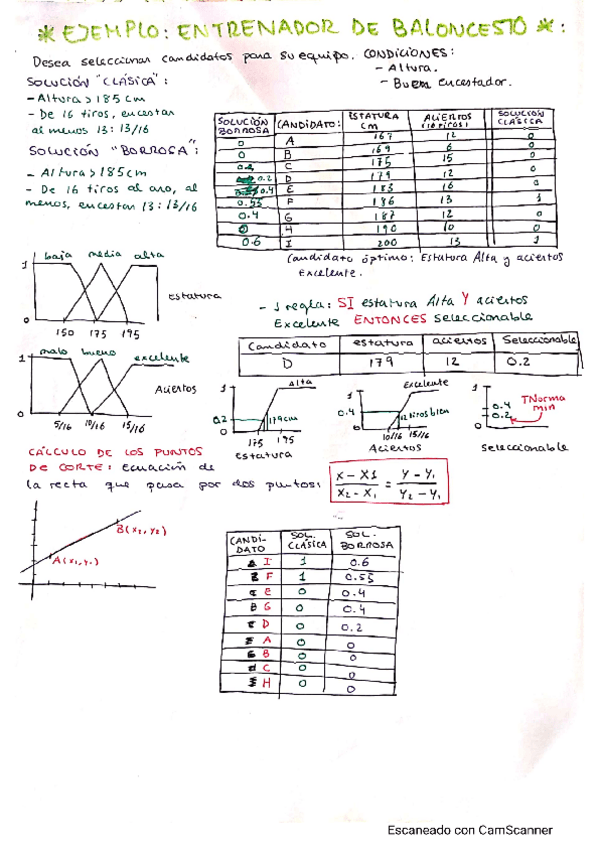 * EJEMPLO: ENTRENADOR DE BALONCESTO *:
Desea seleccionar candidatos para su equipo. CONDICIONES:
- Altura.
- Buen encestador.
SOLUCIÓN "CLÁSICA":
- Altura > 185 cm
- De 16 tiros, encestar
al menos 13: 13/16
SOLUCIÓN "BORROSA":
- Altura > 185 cm
- De 16 tiros al aro, al
menos, encestar 13: 13/16
SOLUCIÓN BORROSA CANDIDATO: ESTATURA cm ACIERTOS (16 tiros) SOLUCIÓN CLÁSICA
0 A 167 12 0
0 B 169 6 0
C 175 15 0
0.2 D 179 12 0
0.4 E 183 16 0
0.55 F 186 13 1
0.4 G 187 12 0
0 H 190 10 0
0.6 I 200 13 1
Candidato óptimo: Estatura Alta y aciertos
Excelente.
baja media alta
1
0
150 175 195
estatura
- 1 regla: SI estatura Alta Y aciertos
Excelente ENTONCES seleccionable
Candidato estatura aciertos Seleccionable
D 179 12 0.2
malo bueno excelente
1
0
5/16 10/16 15/16
Aciertos
Alta
1
0.2
0
179cm
175 195
estatura
Excelente
1
0.4
0
12 tiros bien
10/16 15/16
Aciertos
1
0.4
0.2
0
TNorma
min
Seleccionable
CÁLCULO DE LOS PUNTOS
DE CORTE: ecuación de
la recta que pasa por dos puntos:
x - x1 / x2 - x1 = y - y1 / y2 - y1
B(x2, y2)
A(x1, y1)
CANDIDATO SOL. CLÁSICA SOL. BORROSA
I 1 0.6
F 1 0.55
E 0 0.4
G 0 0.4
D 0 0.2
A 0 0
B 0 0
C 0 0
H 0 0
Escaneado con CamScanner